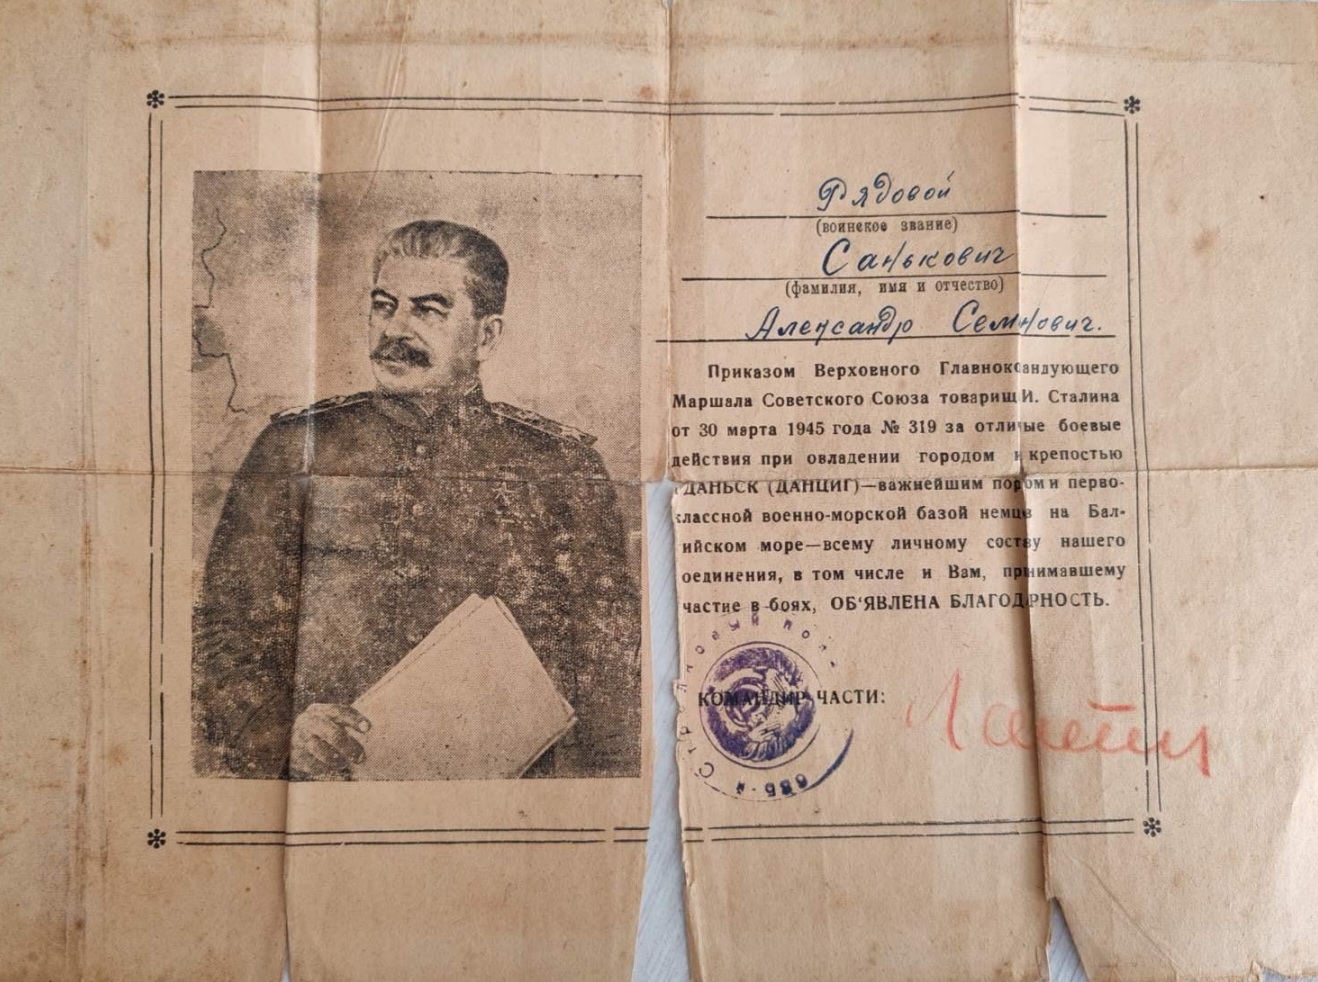 Рядовой
(воинское звание)
Санькович
(фамилия, имя и отчество)
Александр Семнович.
Приказом Верховного Главнокоандующего
Маршала Советского Союза товарищ И. Сталина
от 30 марта 1945 года № 319 за отличые боевые
действия при овладении городом и крепостью
ГДАНЬСК (ДАНЦИГ)—важнейшим портом и перво-
классной военно-морской базой немцев на Бал-
ийском море—всему личному составу нашего
оединения, в том числе и Вам, принимавшему
частие в боях, ОБ'ЯВЛЕНА БЛАГОДАРНОСТЬ.
КОМАНДИР ЧАСТИ: